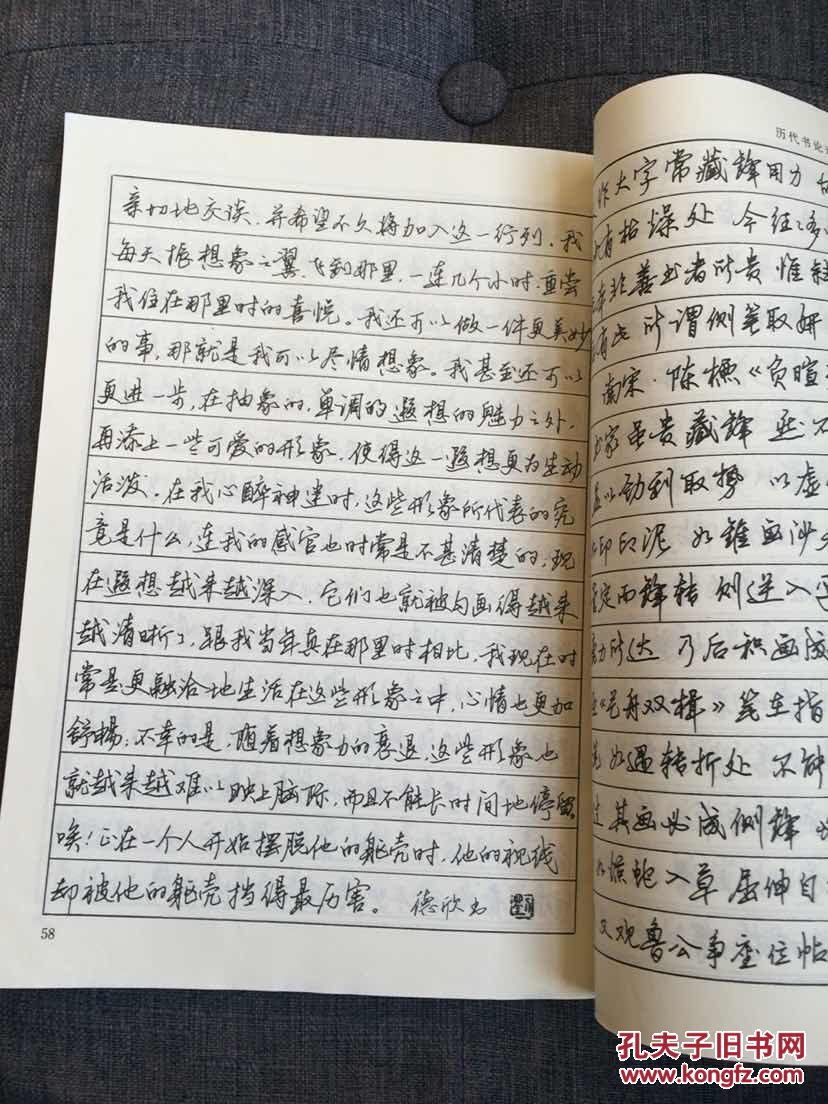 亲切地交谈，并希望不久将加入这一行列。我
每天振想象之翼，飞到那里，一连几个小时，重尝
我住在那里时的喜悦。我还可以做一件更美妙
的事，那就是我可以尽情想象。我甚至还可以
更进一步，在抽象的，单调的遐想的魅力之外，
再添上一些可爱的形象，使得这一遐想更为生动
活泼。在我心醉神迷时，这些形象所代表的究
竟是什么，连我的感官也时常是不甚清楚的，现
在遐想越来越深入，它们也就被勾画得越来
越清晰了，跟我当年真在那里时相比，我现在时
常是更融洽地生活在这些形象之中，心情也更加
舒畅，不幸的是，随着想象力的衰退，这些形象也
就越来越难以映上脑际，而且不能长时间地停留。
唉！正在一个人开始摆脱他的躯壳时，他的视线
却被他的躯壳挡得最厉害。 德欣书
58
历代书论
作大字常藏锋用力
有枯燥处 今
非善书者所贵 惟
有此 所谓侧笔取妍
南宋·陈槱《负暄
书家虽贵藏锋 然不
以劲利取势 以虚
如印印泥 如锥画沙
定而锋转 则逆入
力所达 乃后积画成
舟双楫》笔在指
如遇转折处 不能
其画必成侧锋
蛇入草 屈伸自
又观鲁公争座位帖
孔夫子旧书网
www.kongfz.com